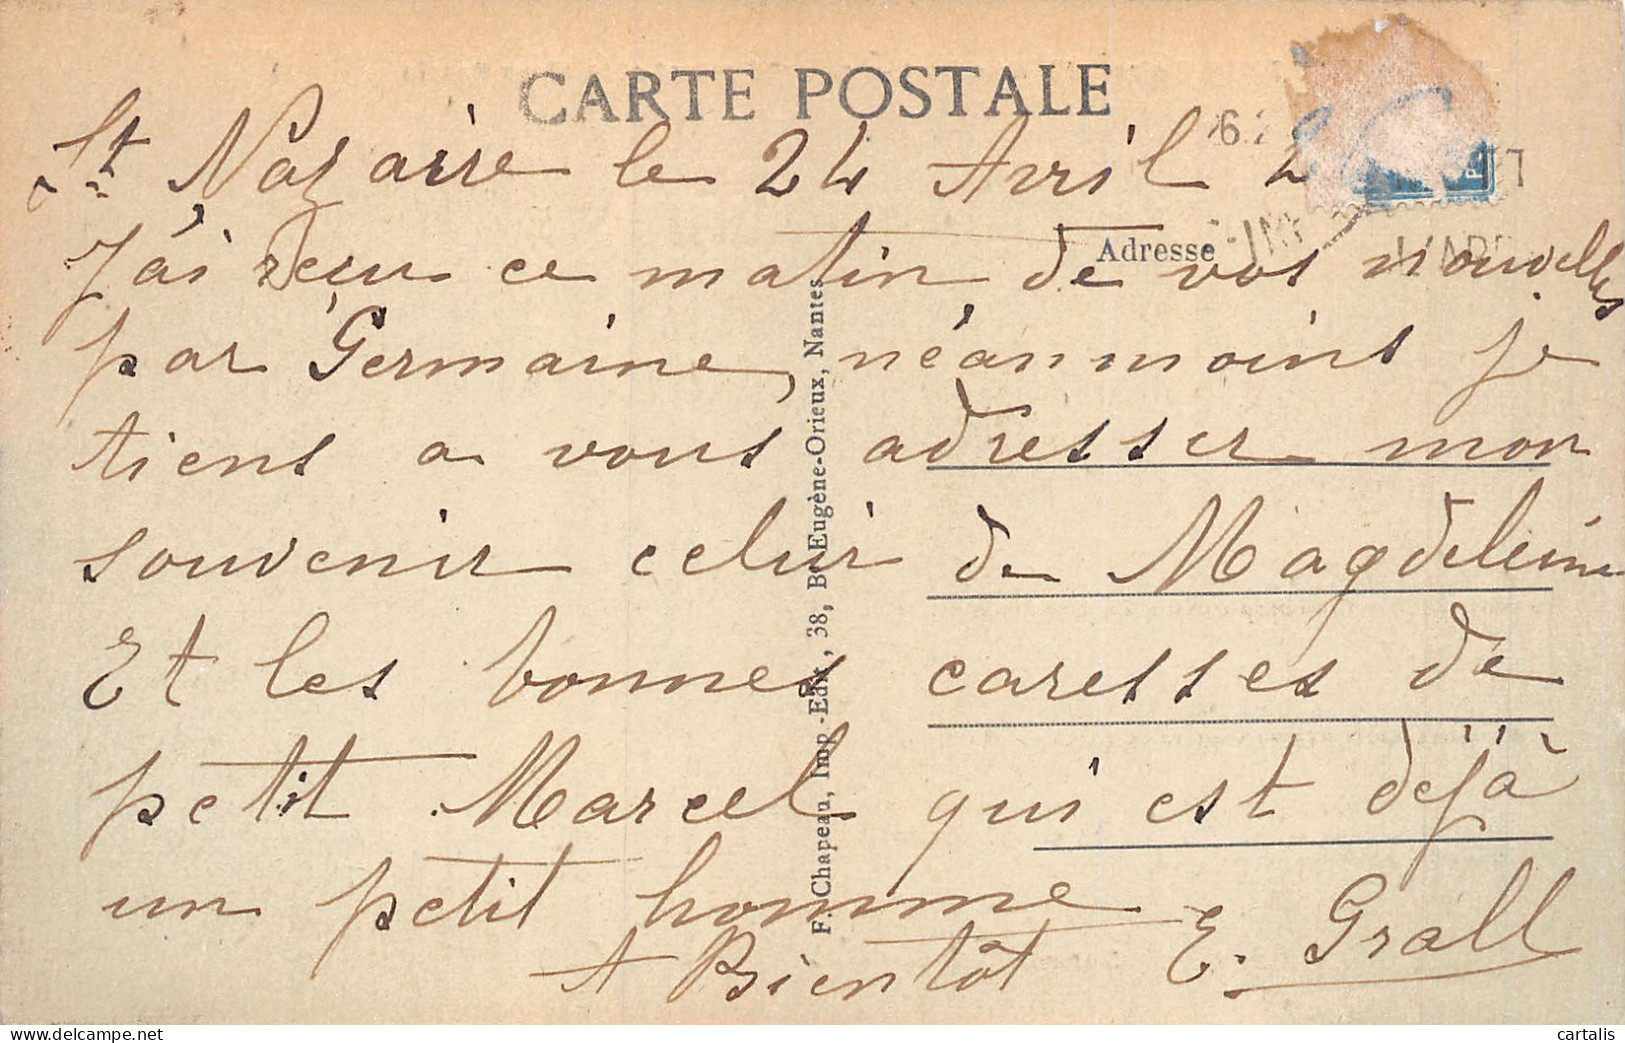 CARTE POSTALE
St Nazaire le 24 Avril 2
Adresse
J'ai reçu ce matin de vos nouvelles
par Germaine, néanmoins je
tiens a vous adresser mon
souvenir celui de Magdeleine
Et les bonnes caresses de
petit Marcel qui est déjà
un petit homme
A Bientôt E. Grall
F. Chapeau, Imp.-Edit., 38, Bd Eugène-Orieux, Nantes
cartalis